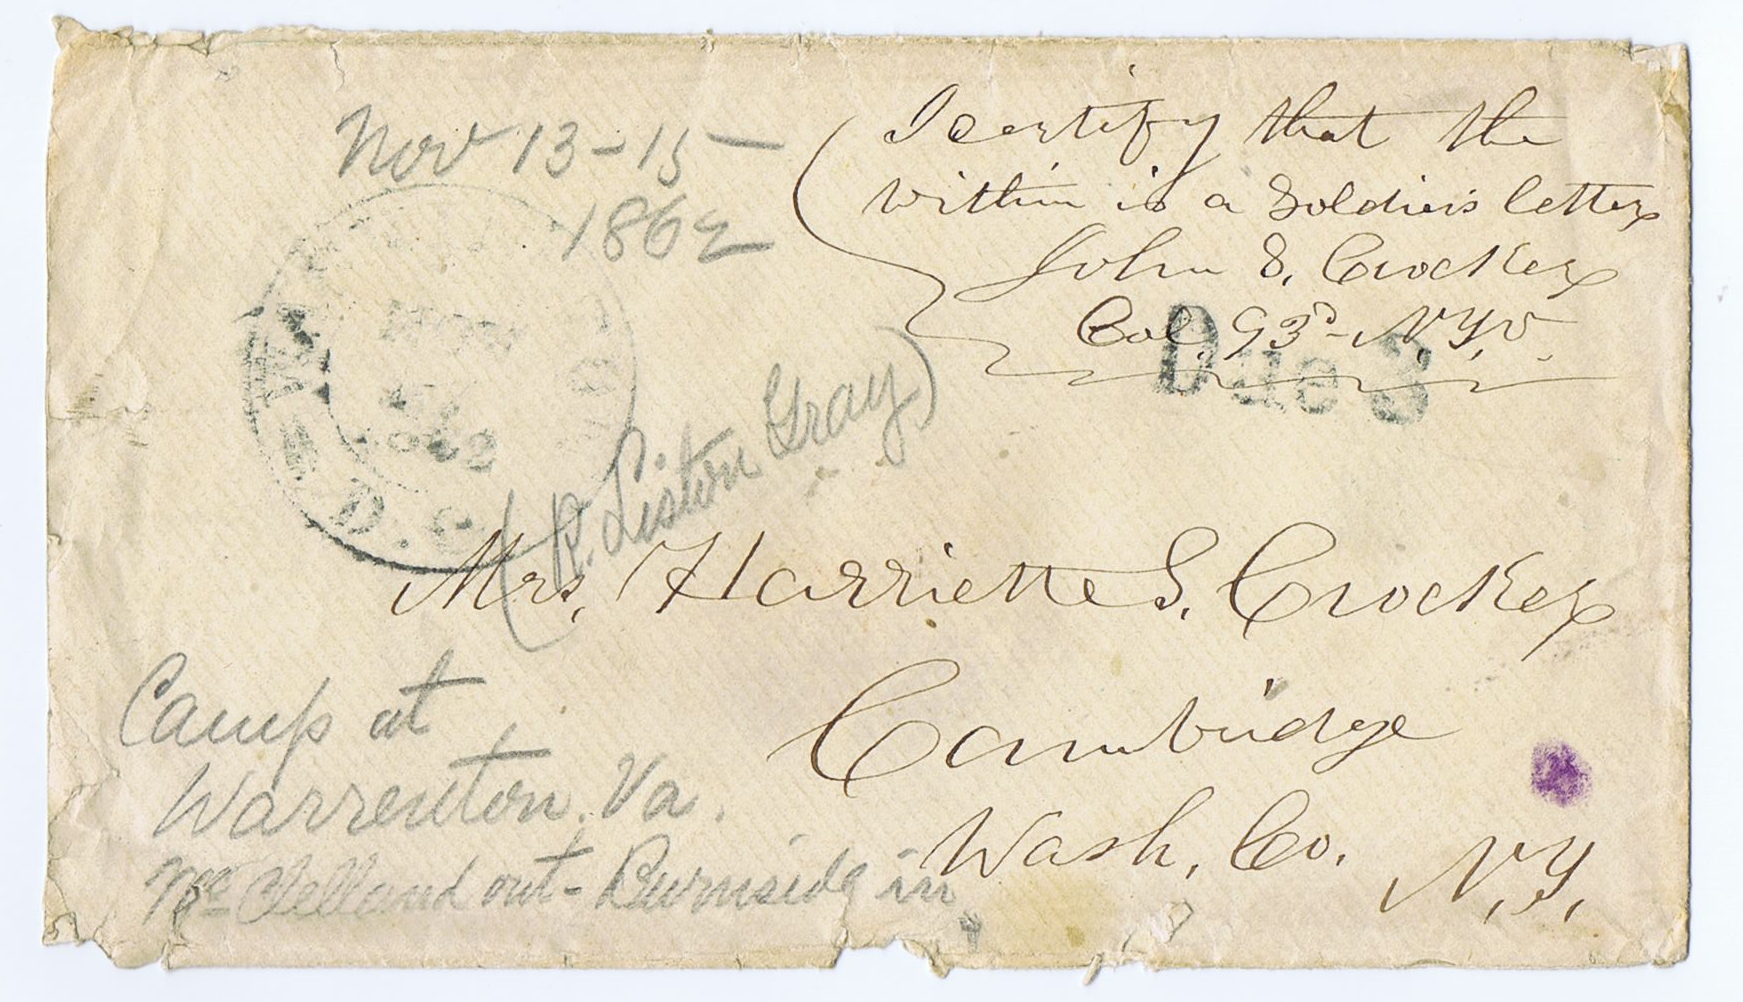 Nov 13-15-
1862
I certify that the
within is a Soldiers letter
John S. Crocker
Col. 93d N.Y.V.
Due 3
NOV
1862
D.C.
(R. Liston Gray)
Mrs. Harriette S. Crocker
Cambridge
Wash. Co. N.Y.
Camp at
Warrenton. Va.
McClelland out - Burnside in